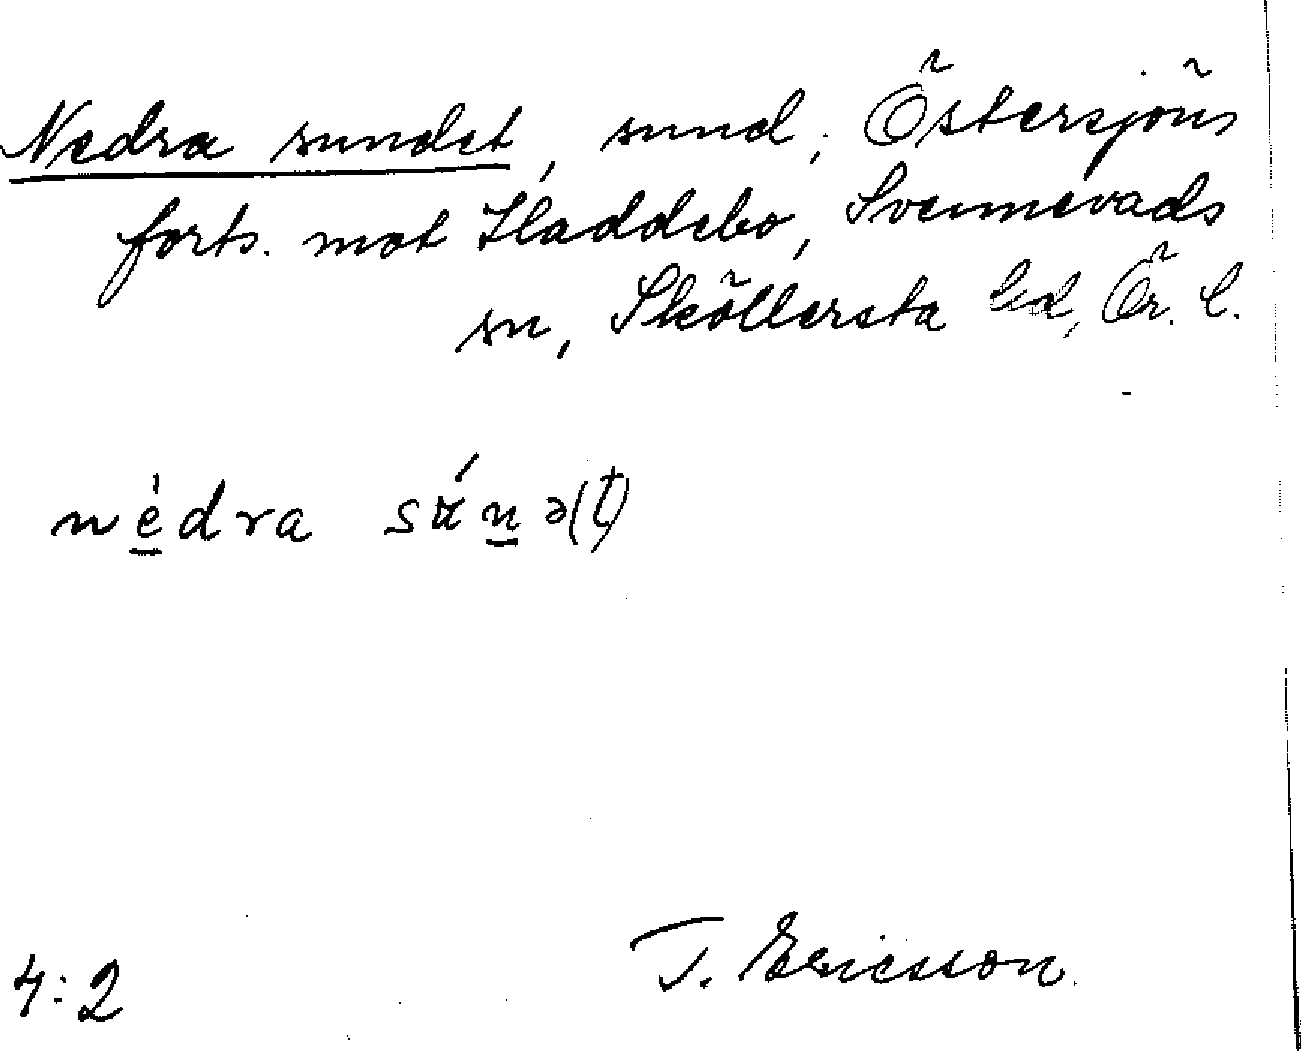 Nedra sundet, sund, Östersjöns
forts. mot Sladdebo, Svennevads
sn, Sköllersta hd, Ör. l.
nèdra súnə(t)
4:2
T. Ericsson